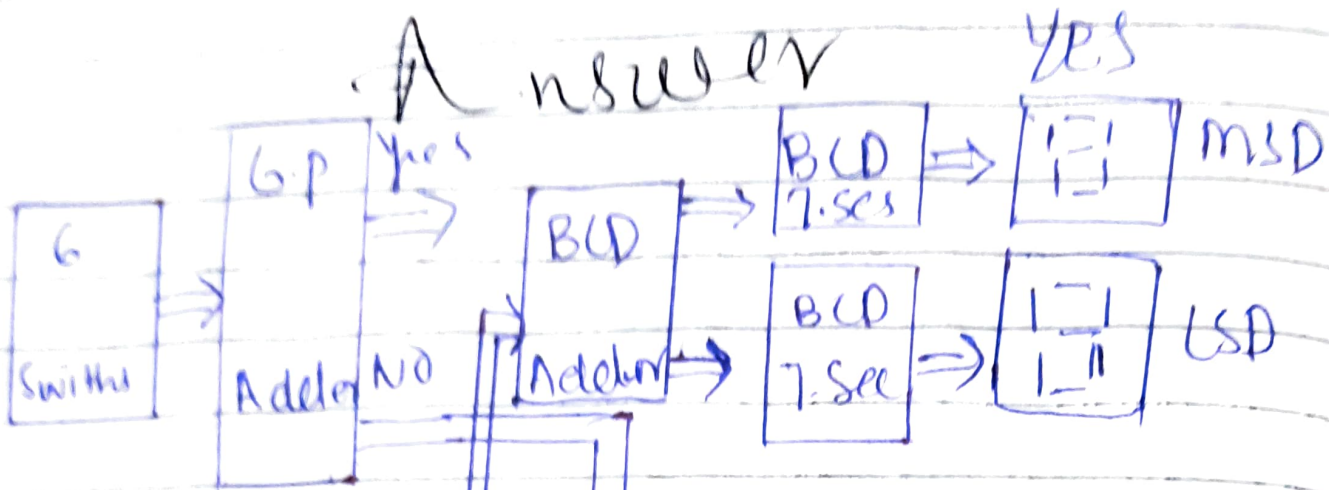 Answer
Yes
6
Swiths
6.P
Adder
Yes
NO
BCD
Adder
BCD
7.Ses
MSD
BCD
7.See
LSD